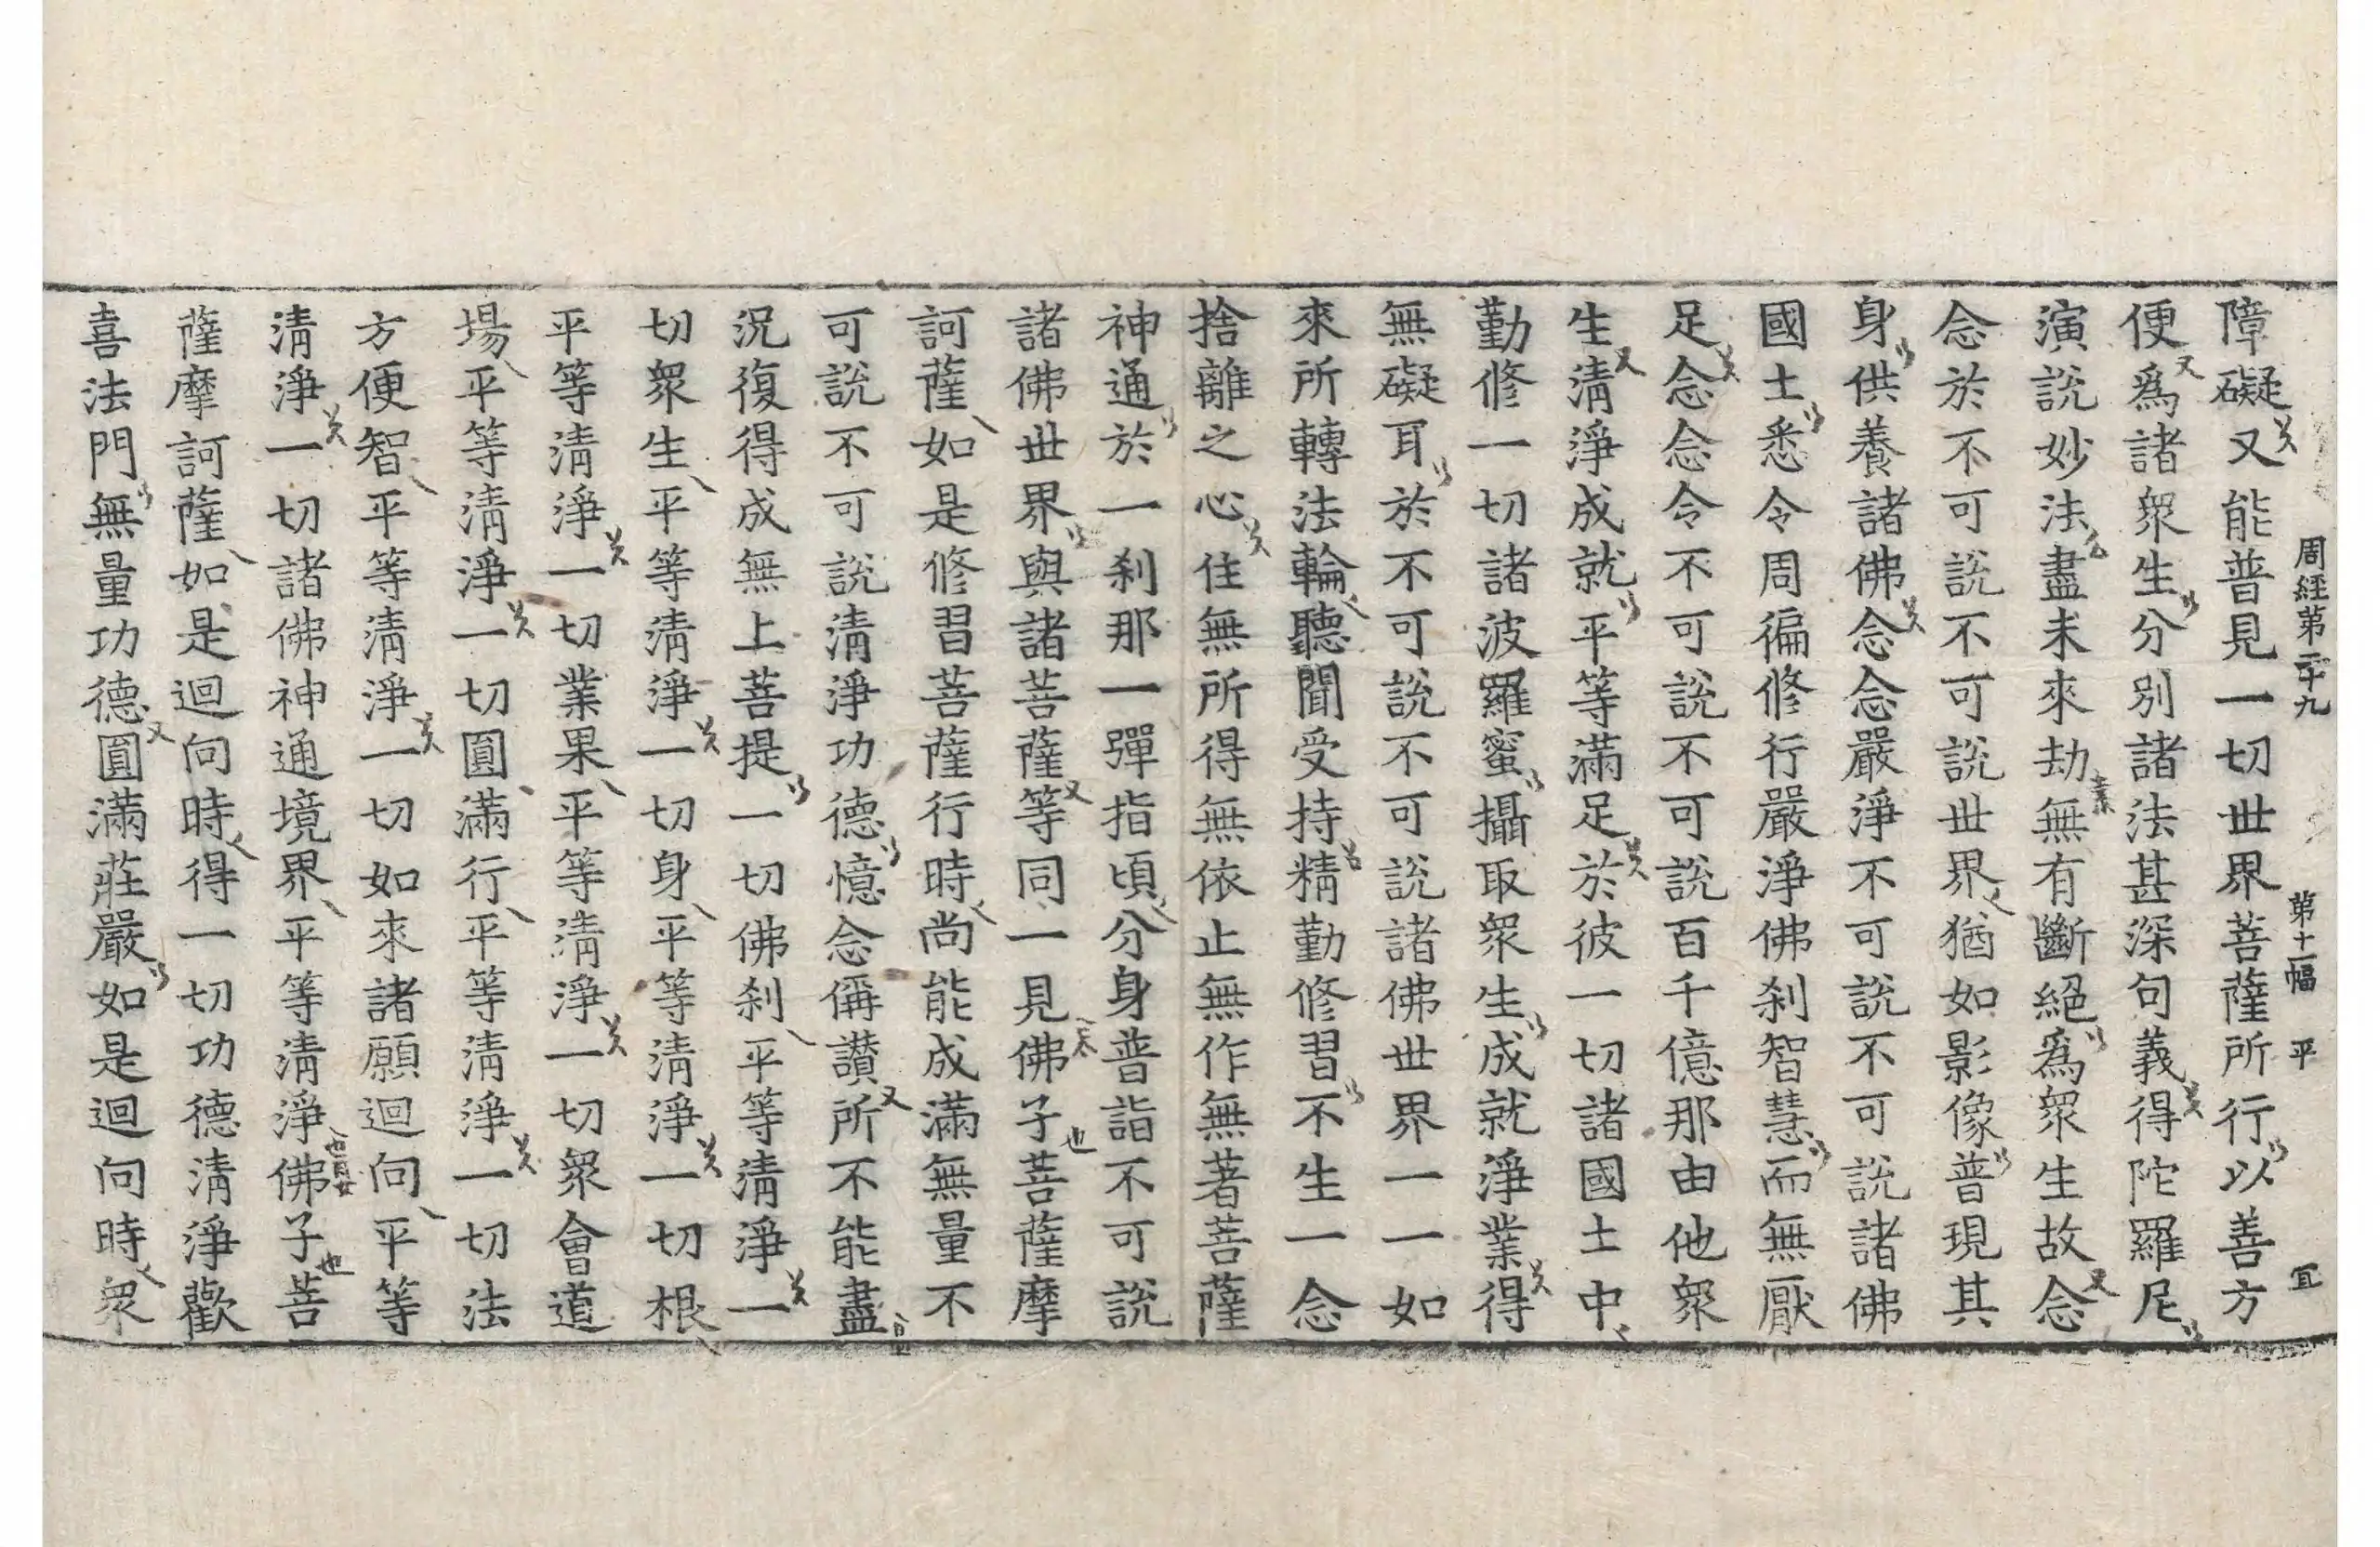 周經第二十九 第十一幅 平 宜
障礙又能普見一切世界菩薩所行以善方
便爲諸衆生分別諸法甚深句義得陀羅尼
演說妙法盡未來劫無有斷絕爲衆生故念
念於不可說不可說世界猶如影像普現其
身供養諸佛念念嚴淨不可說不可說諸佛
國土悉令周徧修行嚴淨佛刹智慧而無厭
足念念令不可說不可說百千億那由他衆
生清淨成就平等滿足於彼一切諸國土中
勤修一切諸波羅蜜攝取衆生成就淨業得
無礙耳於不可說不可說諸佛世界一一如
來所轉法輪聽聞受持精勤修習不生一念
捨離之心住無所得無依止無作無著菩薩
神通於一刹那一彈指頃分身普詣不可說
諸佛世界與諸菩薩等同一見佛子菩薩摩
訶薩如是修習菩薩行時尚能成滿無量不
可說不可說清淨功德憶念偁讃所不能盡
況復得成無上菩提一切佛刹平等清淨一
切衆生平等清淨一切身平等清淨一切根
平等清淨一切業果平等清淨一切衆會道
場平等清淨一切圓滿行平等清淨一切法
方便智平等清淨一切如來諸願迴向平等
清淨一切諸佛神通境界平等清淨佛子菩
薩摩訶薩如是迴向時得一切功德清淨歡
喜法門無量功德圓滿莊嚴如是迴向時衆